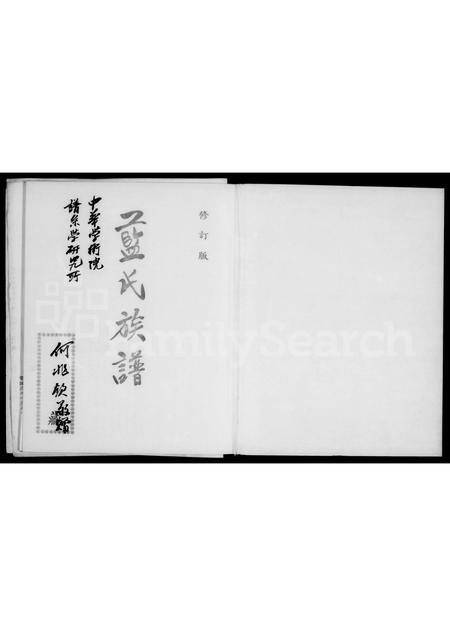 修訂版
藍氏族譜
中華學術院
譜系學研究所
何兆欽敬贈
FamilySearch